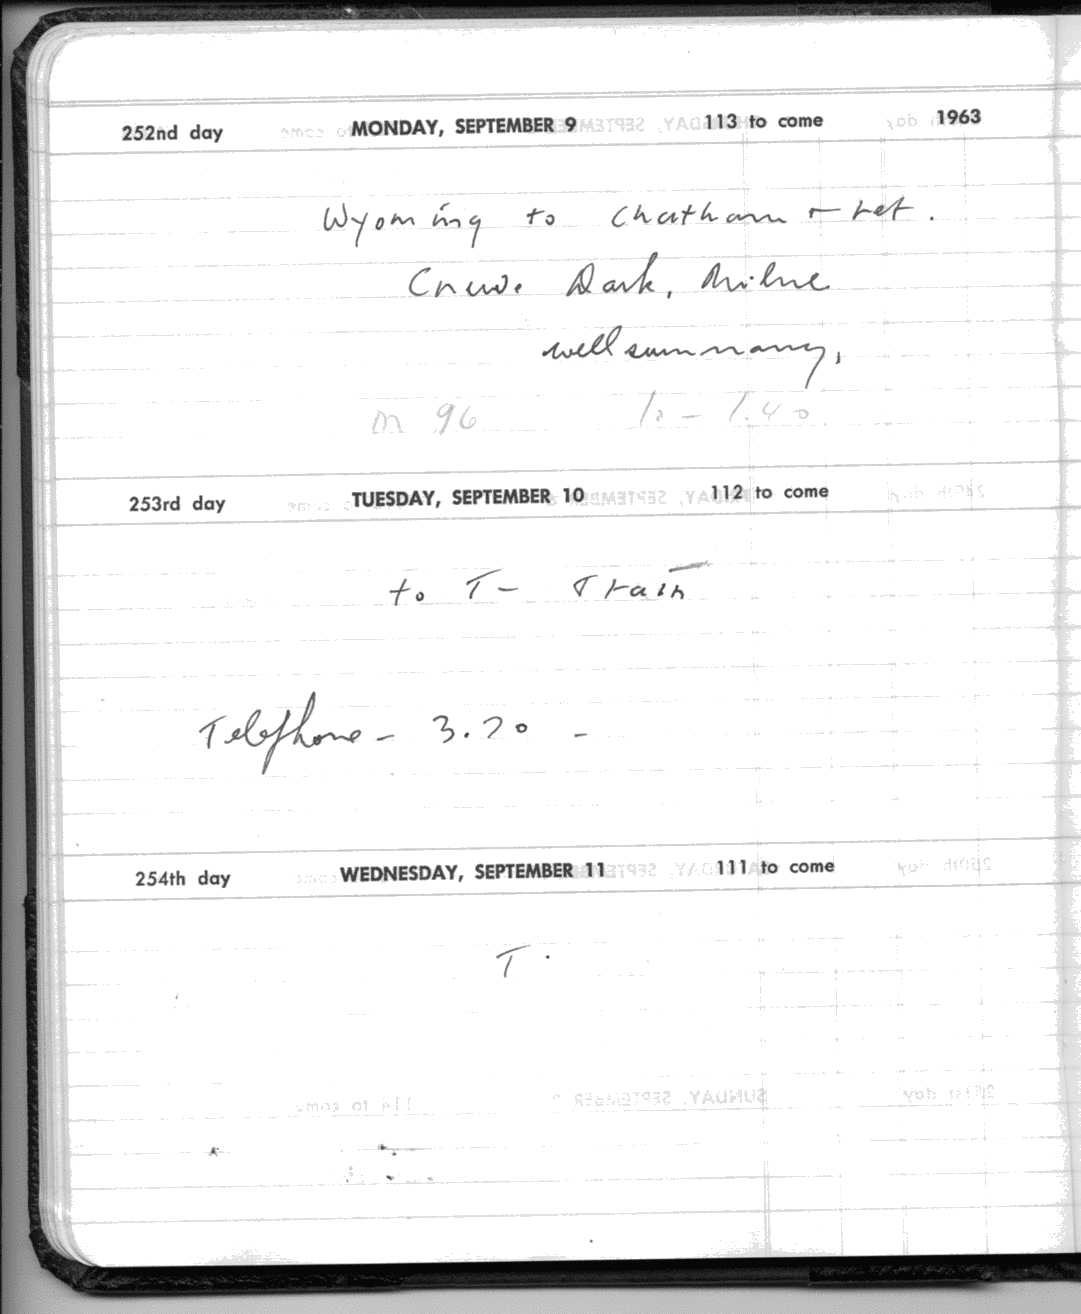 252nd day MONDAY, SEPTEMBER 9 113 to come 1963
Wyoming to Chatham + ret.
Dark, Milne
well summary,
m 96 10 - 1.40
253rd day TUESDAY, SEPTEMBER 10 112 to come
to T - Train
Telephone - 3.20 -
254th day WEDNESDAY, SEPTEMBER 11 111 to come
T.